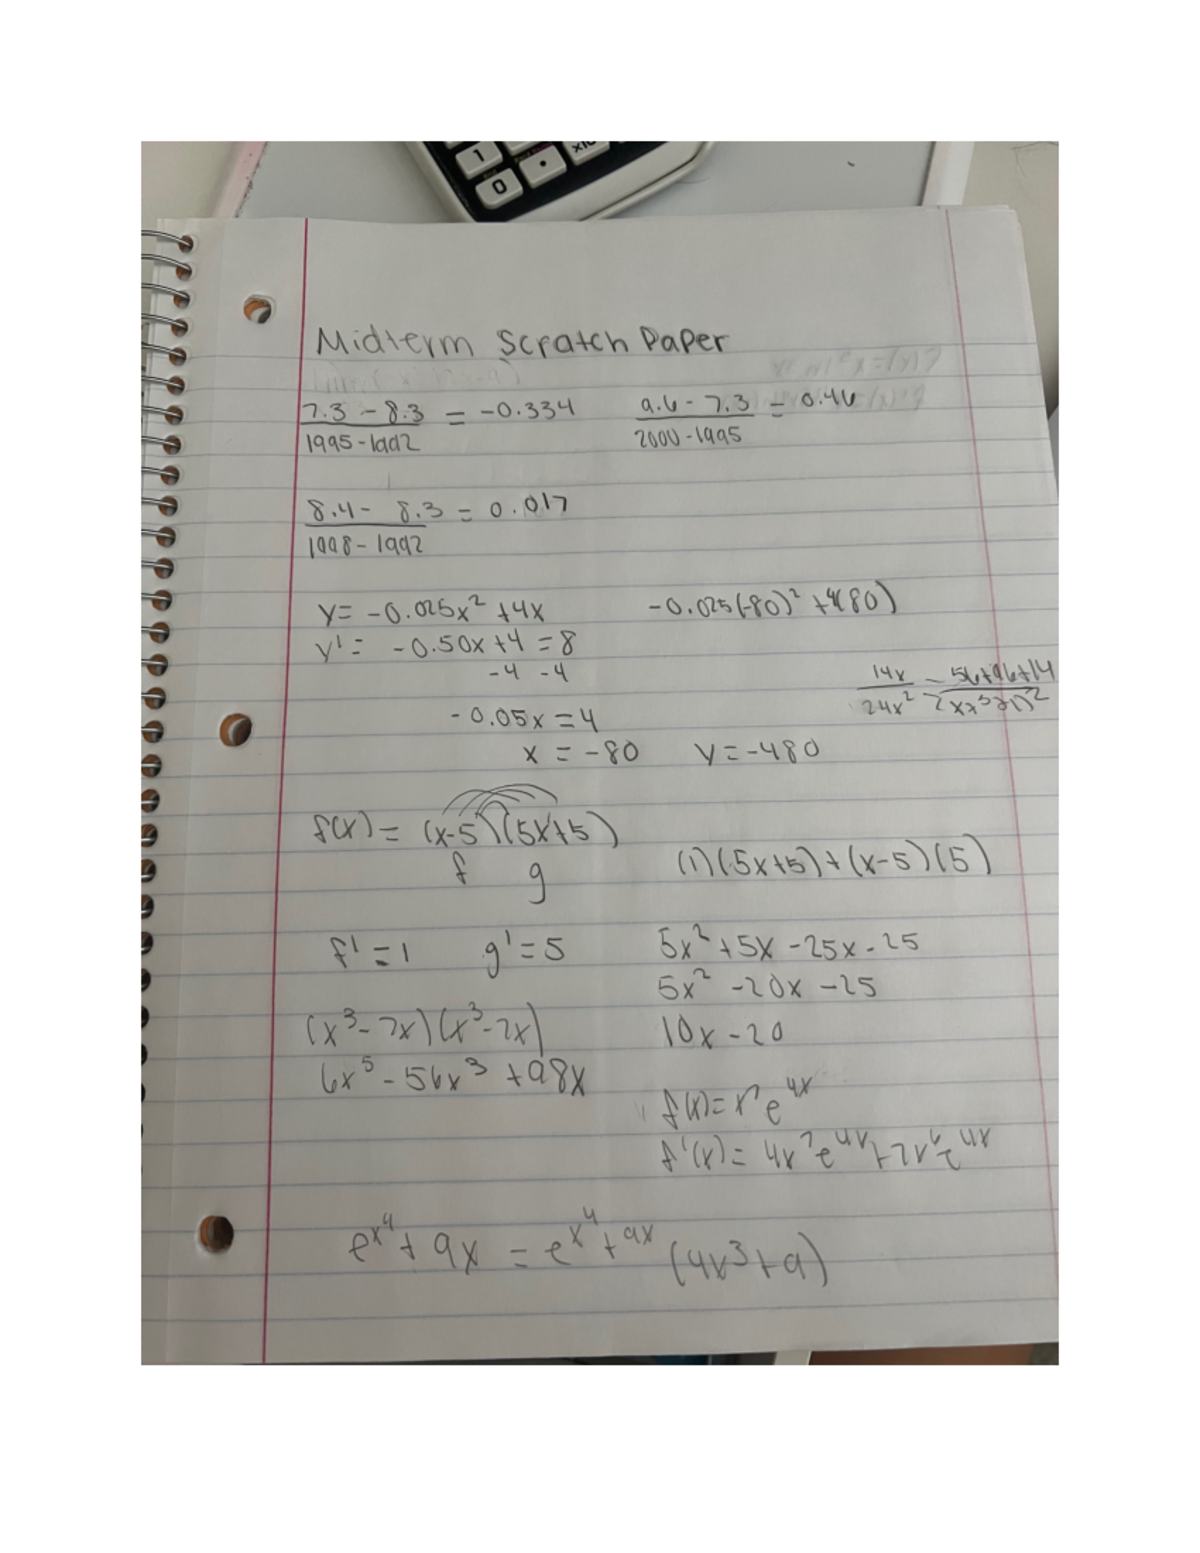 1
0
•
Midterm Scratch Paper
7.3 - 8.3 / 1995 - 1992 = -0.334
9.6 - 7.3 / 2000 - 1995 = 0.46
8.4 - 8.3 / 1998 - 1992 = 0.017
y = -0.025x² + 4x
-0.025(-80)² + 4(80)
y' = -0.50x + 4 = 8
-4 -4
-0.05x = 4
x = -80 y = -480
14x / 24x²
f(x) = (x-5)(5x+5)
f g
(1)(5x+5) + (x-5)(5)
f' = 1 g' = 5
5x² + 5x - 25x - 25
5x² - 20x - 25
(x³ - 7x)(x³ - 7x)
10x - 20
6x⁵ - 56x³ + 98x
f(x) = x⁷e⁴ˣ
f'(x) = 4x⁷e⁴ˣ + 7x⁶e⁴ˣ
e^x⁴ + 9x = e^x⁴ + 9x (4x³ + 9)